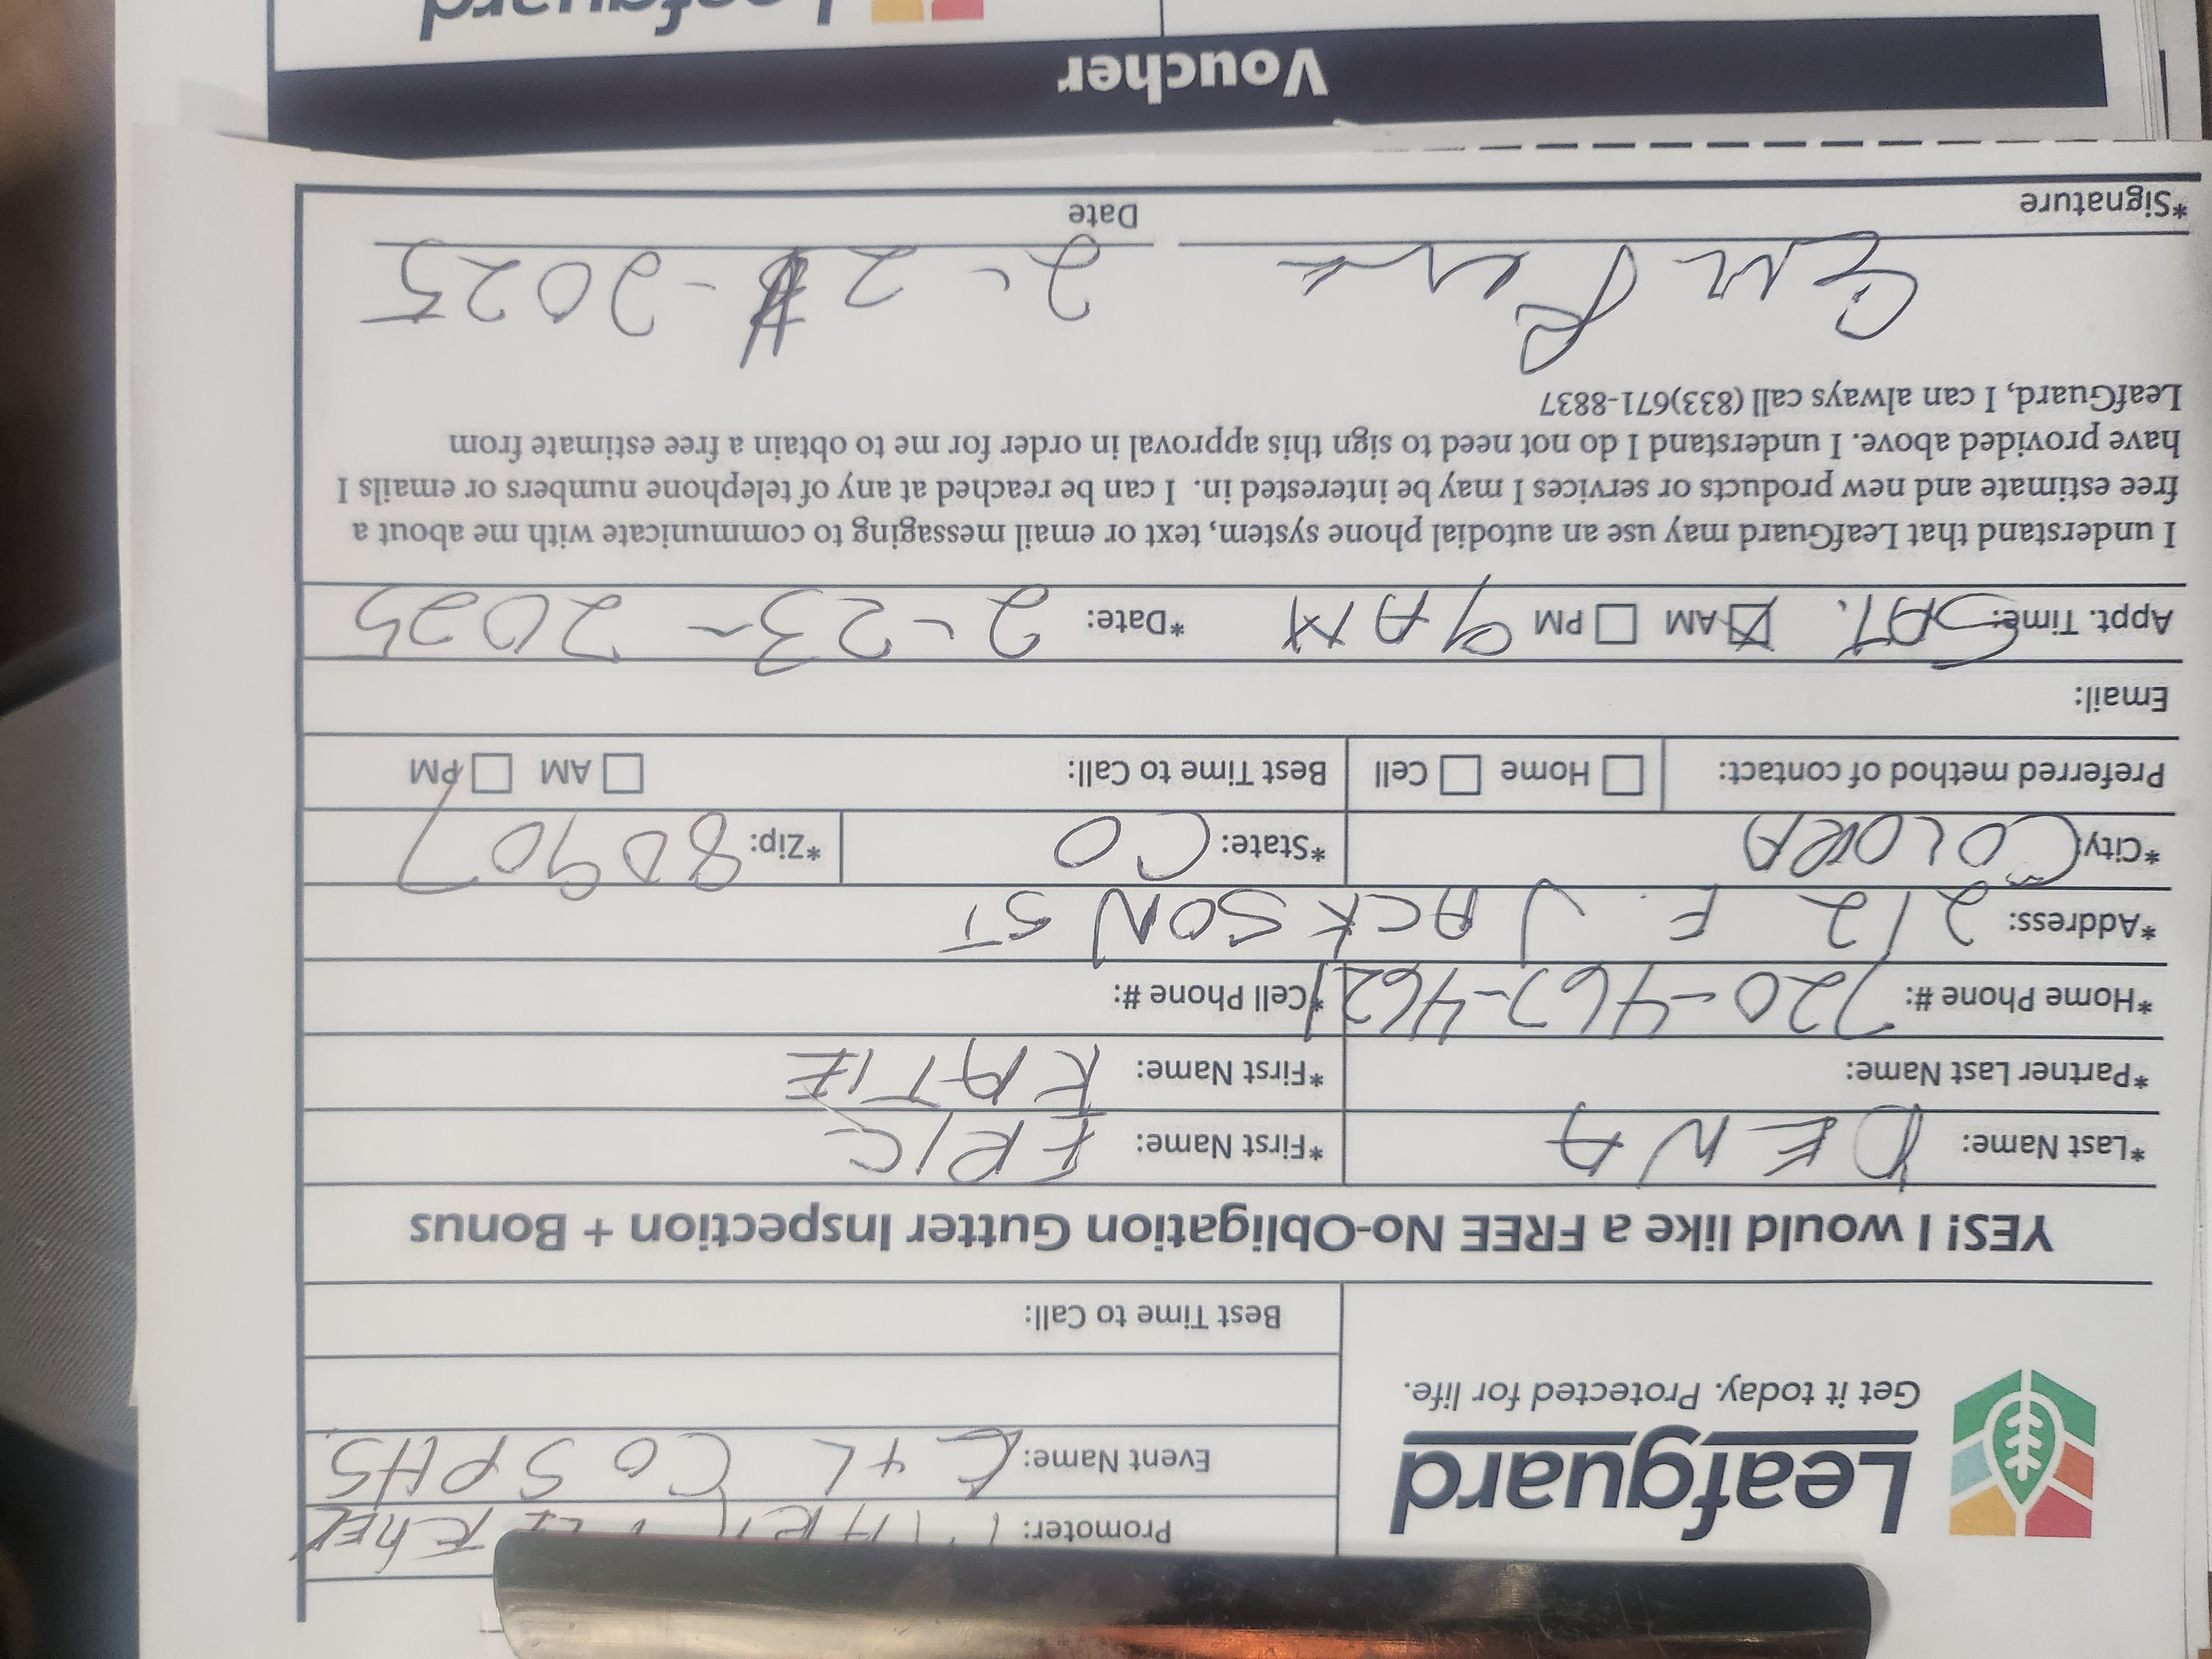 Leafguard
Get it today. Protected for life.
Promoter:
Event Name: C4L COSPHS
Best Time to Call:
YES! I would like a FREE No-Obligation Gutter Inspection + Bonus
*Last Name: PENA *First Name: ERIC
*Partner Last Name: *First Name: KATIE
*Home Phone #: 720-467-4621 *Cell Phone #:
*Address: 212 E. JACKSON ST
*City: *State: CO *Zip: 80907
Preferred method of contact: Home Cell Best Time to Call: AM PM
Email:
Appt. Time: SAT. AM PM 9 AM *Date: 2-23-2025
I understand that LeafGuard may use an autodial phone system, text or email messaging to communicate with me about a
free estimate and new products or services I may be interested in. I can be reached at any of telephone numbers or emails I
have provided above. I understand I do not need to sign this approval in order for me to obtain a free estimate from
LeafGuard, I can always call (833)671-8837
2-2 -2025
*Signature Date
Voucher
Leafguard